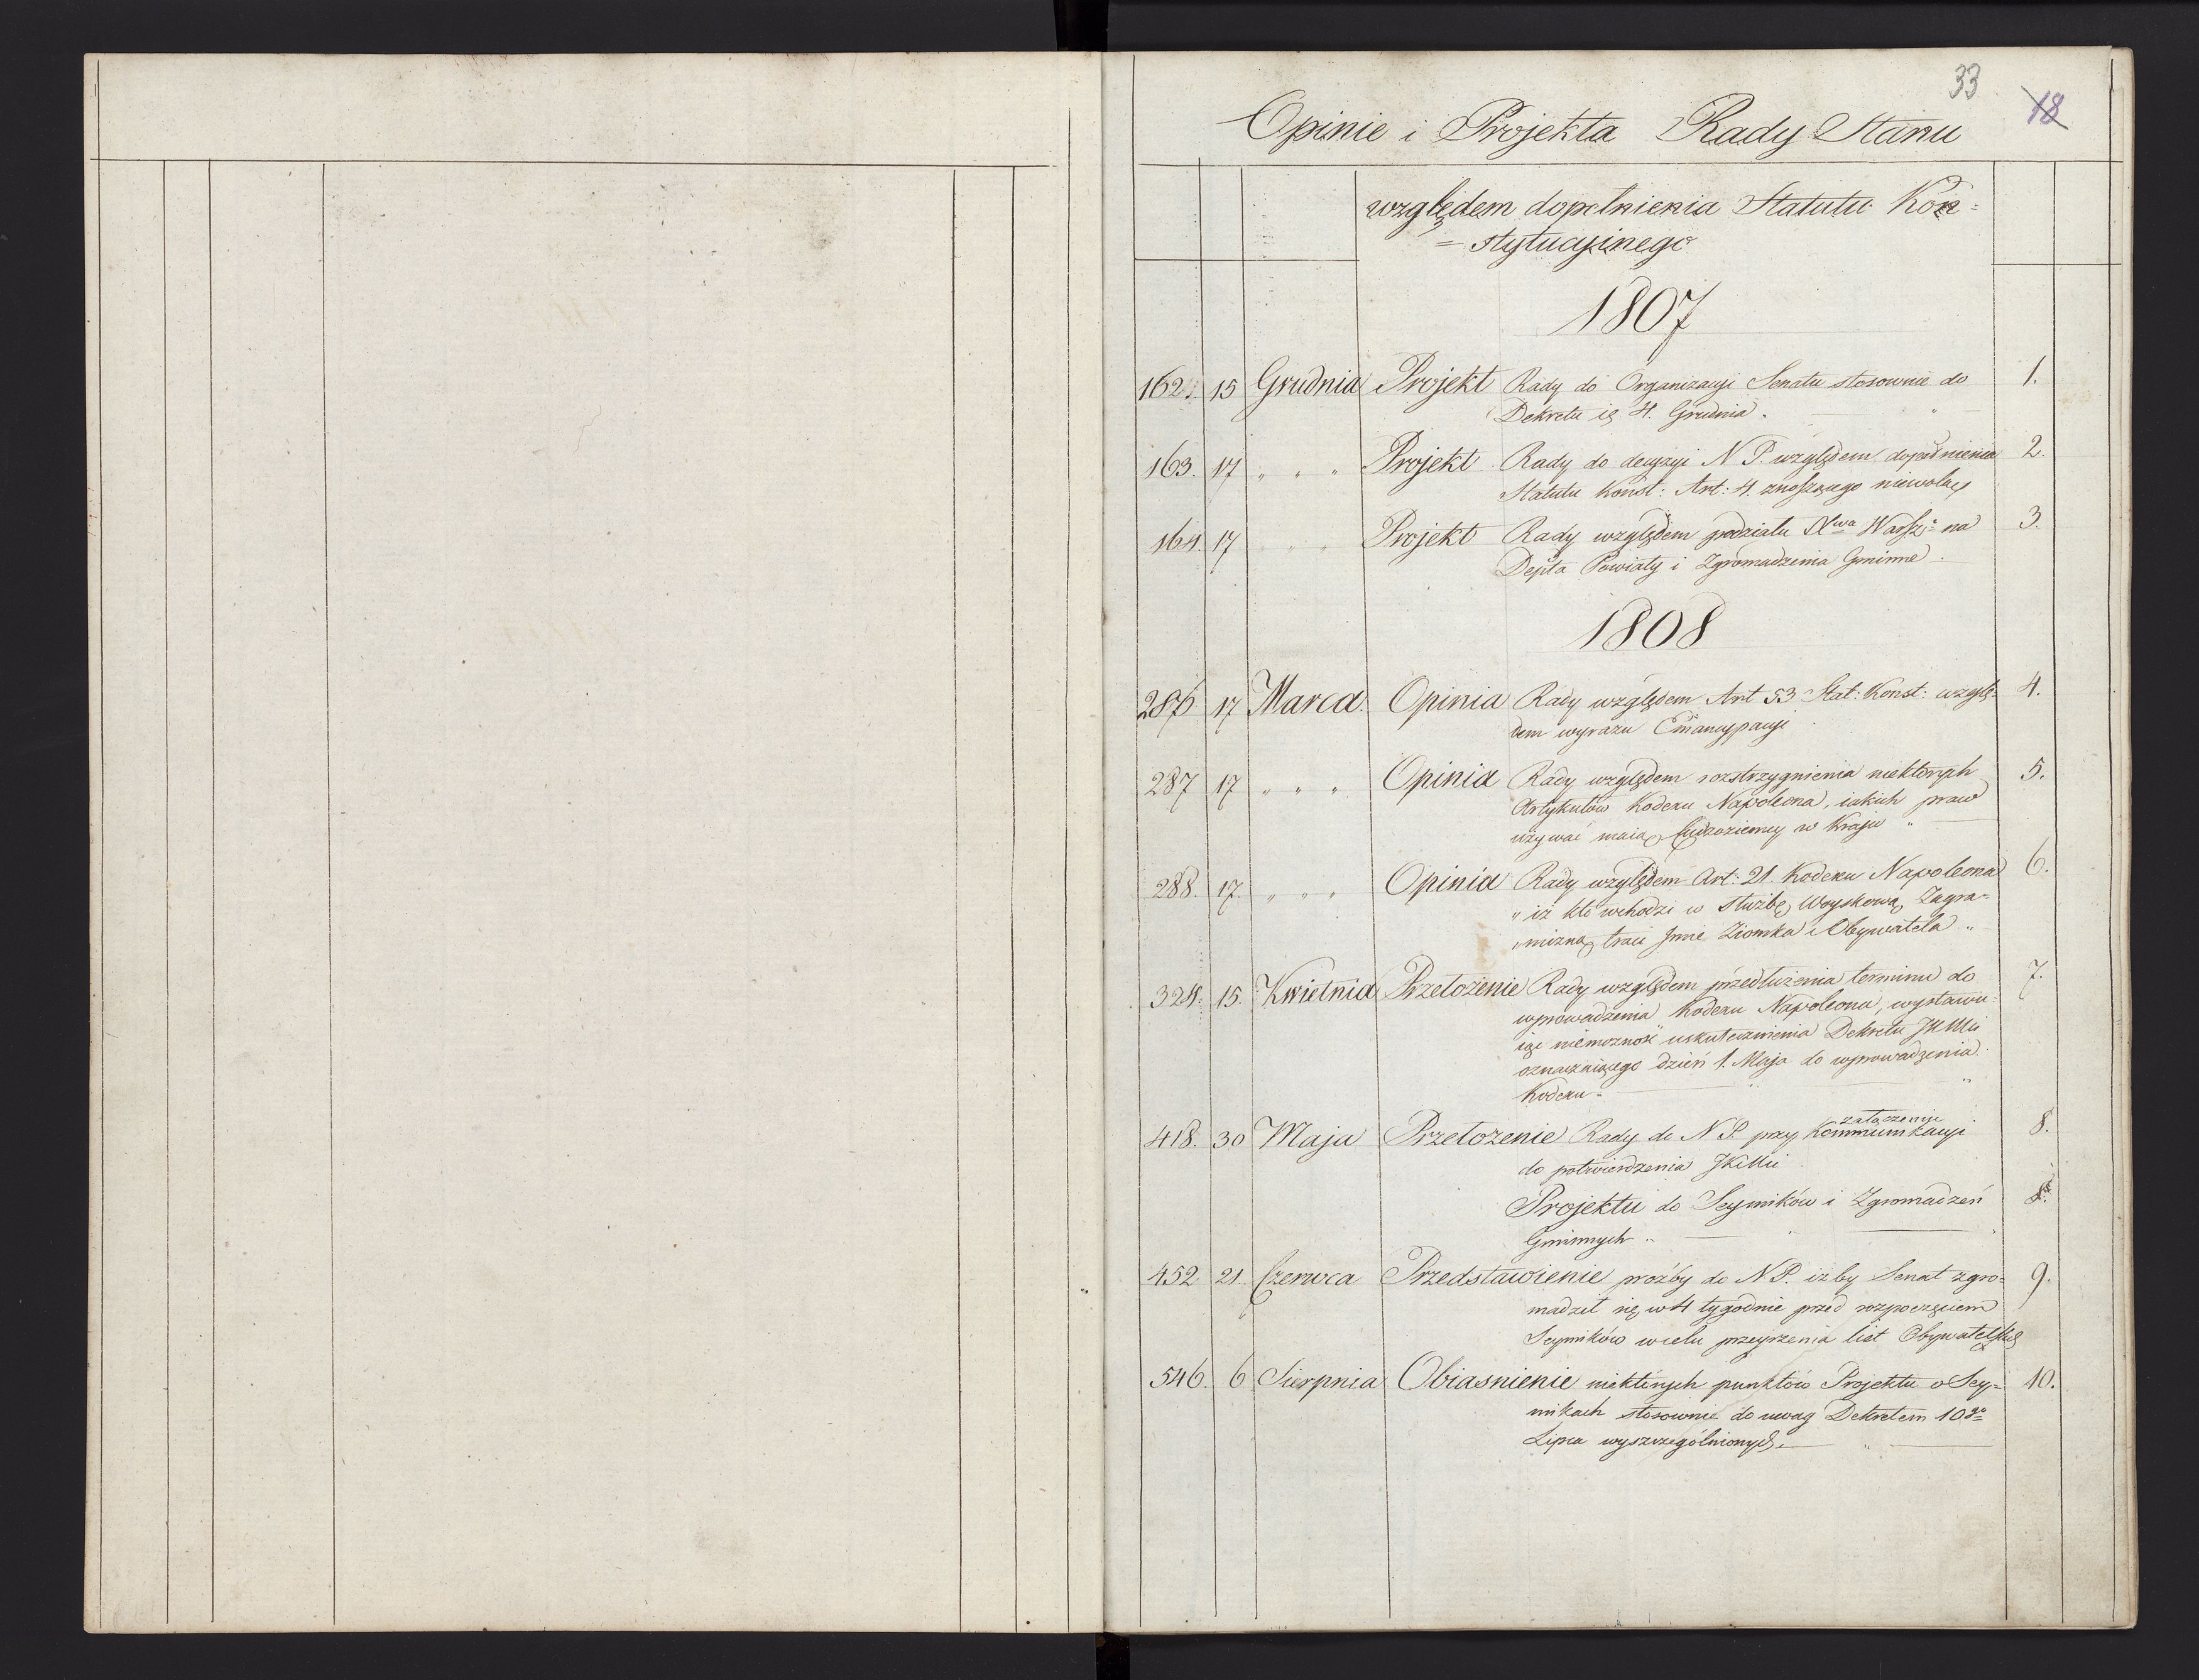 33
18
Opinie i Projekta Rady Stanu
względem dopełnienia Statutu Kon=
=stytucyjnego
1807
162. 15 Grudnia Projekt Rady do Organizacyi Senatu stosownie do 1.
Dekretu 4. Grudnia.
163. 17 " " " Projekt Rady do decyzyi N P. względem dopełnienia 2.
Statutu Konst: Art: 4. znoszącego niewolą
164. 17 " " Projekt Rady względem podziału Xwa Warszo na 3.
Depta Powiaty i Zgromadzenia Gminne.
1808
286 17 Marca. Opinia Rady względem Art 53 Stat: Konst: wzglę= 4.
dem wyrazu Emancypacyi
287 17 " " " Opinia Rady względem rozstrzygnienia niektórych 5.
Artykułów Kodexu Napoleona, iakich praw
używać maią Cudzoziemcy w Kraju "
288. 17. " " " Opinia Rady względem Art: 21. Kodexu Napoleona 6.
" iż kto wchodzi w służbę Woyskową Zagra=
"niczną traci Imie Ziomka i Obywatela "
324. 15. Kwietnia Przełożenie Rady względem przedłużenia terminu do 7.
wprowadzenia Kodexu Napoleona, wystawu=
iąc niemożność uskutecznienia Dekretu JKMci
oznaczaiącego dzień 1. Maja do wprowadzenia
Kodexu.
418. 30 Maja Przełożenie Rady do N P. przy Kommunikacyi 8.
załączeniu
do potwierdzenia JKMci
Projektu do Seymików i Zgromadzeń 8.
Gminnych "
452 21. Czerwca Przedstawienie prożby do N P. iżby Senat zgro= 9.
madził się w 4 tygodnie przed rozpoczęciem
Seymików w celu przeyrzenia list Obywatelskich
546. 6 Sierpnia Obiasnienie niektórych punktów Projektu o Sey= 10.
mikach stosownie do uwag Dekretem 10go
Lipca wyszczególnionych.